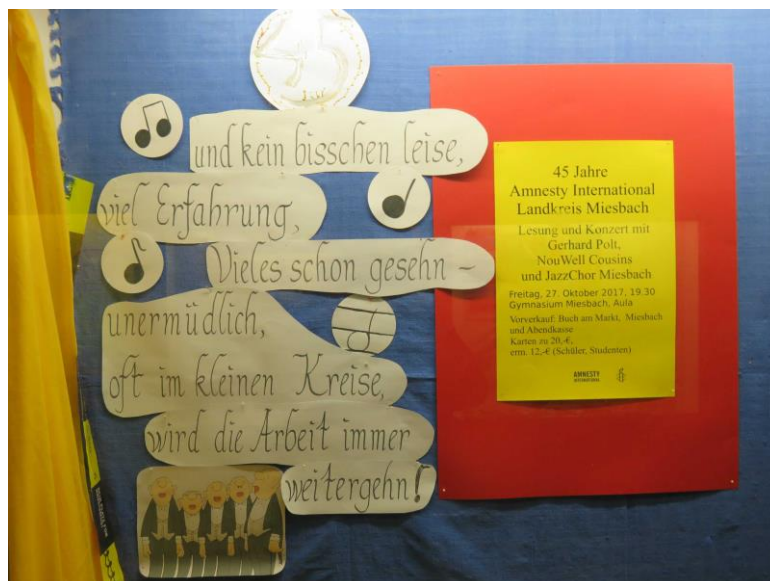 und kein bisschen leise,
viel Erfahrung,
Vieles schon gesehn –
unermüdlich,
oft im kleinen Kreise,
wird die Arbeit immer
weitergehn!
45 Jahre
Amnesty International
Landkreis Miesbach
Lesung und Konzert mit
Gerhard Polt,
NouWell Cousins
und JazzChor Miesbach
Freitag, 27. Oktober 2017, 19.30
Gymnasium Miesbach, Aula
Vorverkauf: Buch am Markt, Miesbach
und Abendkasse
Karten zu 20,-€,
erm. 12,-€ (Schüler, Studenten)
AMNESTY
INTERNATIONAL